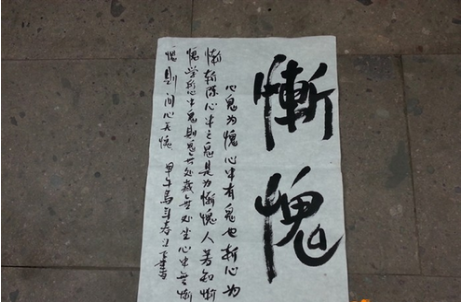 慚愧
心鬼为愧 心中有鬼也 斩心为
慚 斩除心中之鬼是为慚愧 人若知慚
愧 心中鬼則鬼无处藏无处 心中无慚
愧則问心无愧 甲午马年春